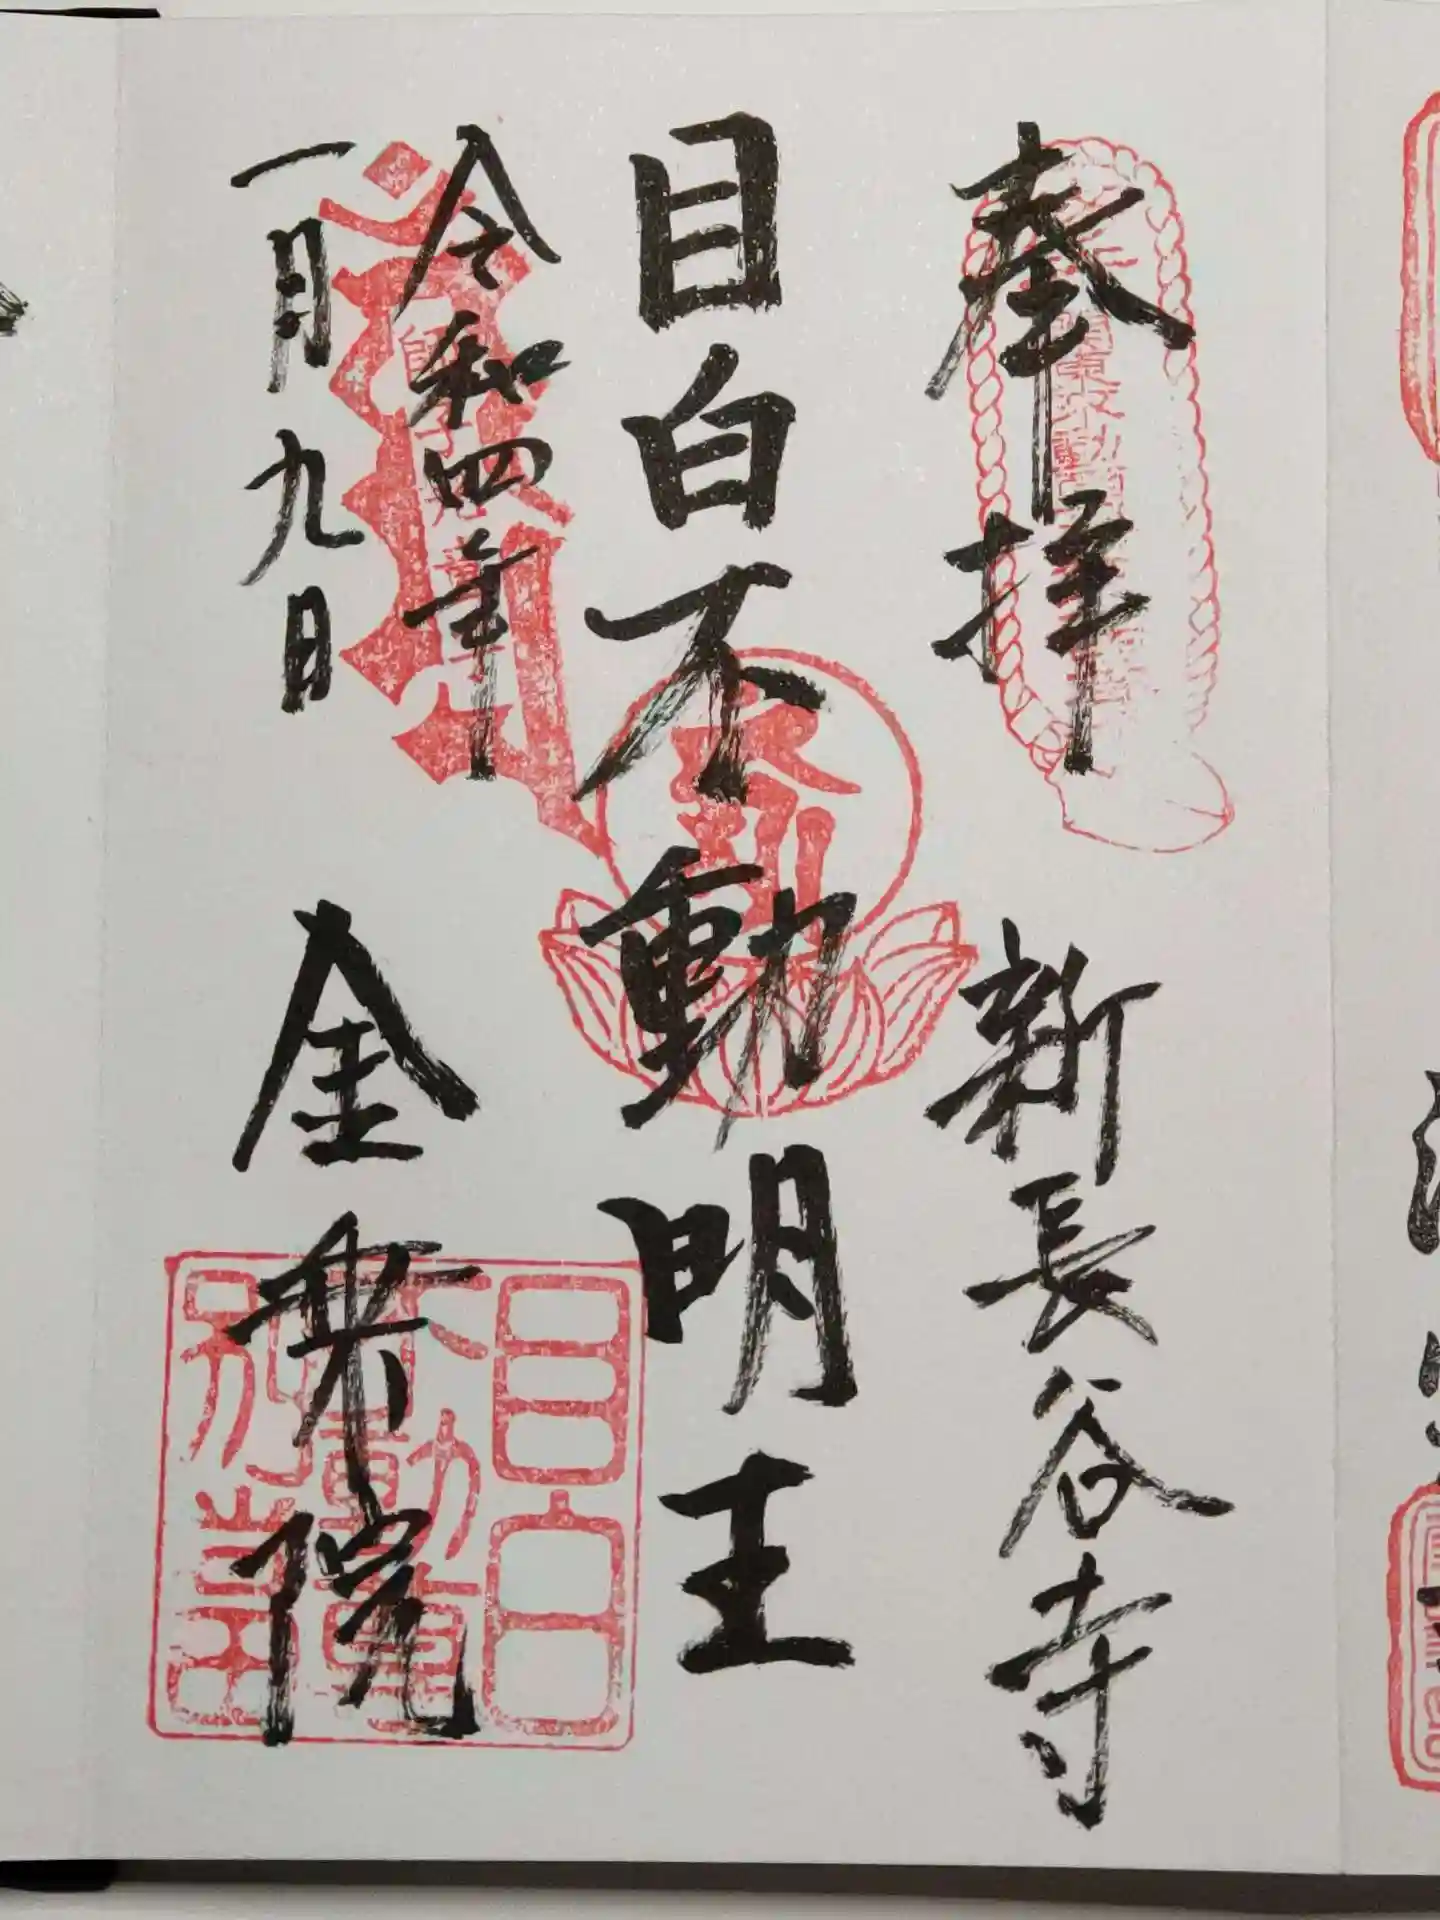 奉拝
新長谷寺
目白不動明王
令和四年
一月九日
金乗院
目白
不動尊
別當